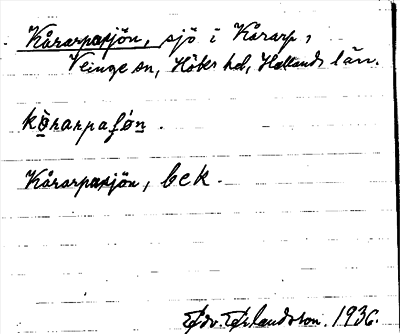 Kårarpasjön, sjö i Kårarp,
Veinge sn, Höks hd, Hallands län.
kò̱rarpaʃø̀n.
Kårarpasjön, bek.
Edv. Erlandsson. 1936.